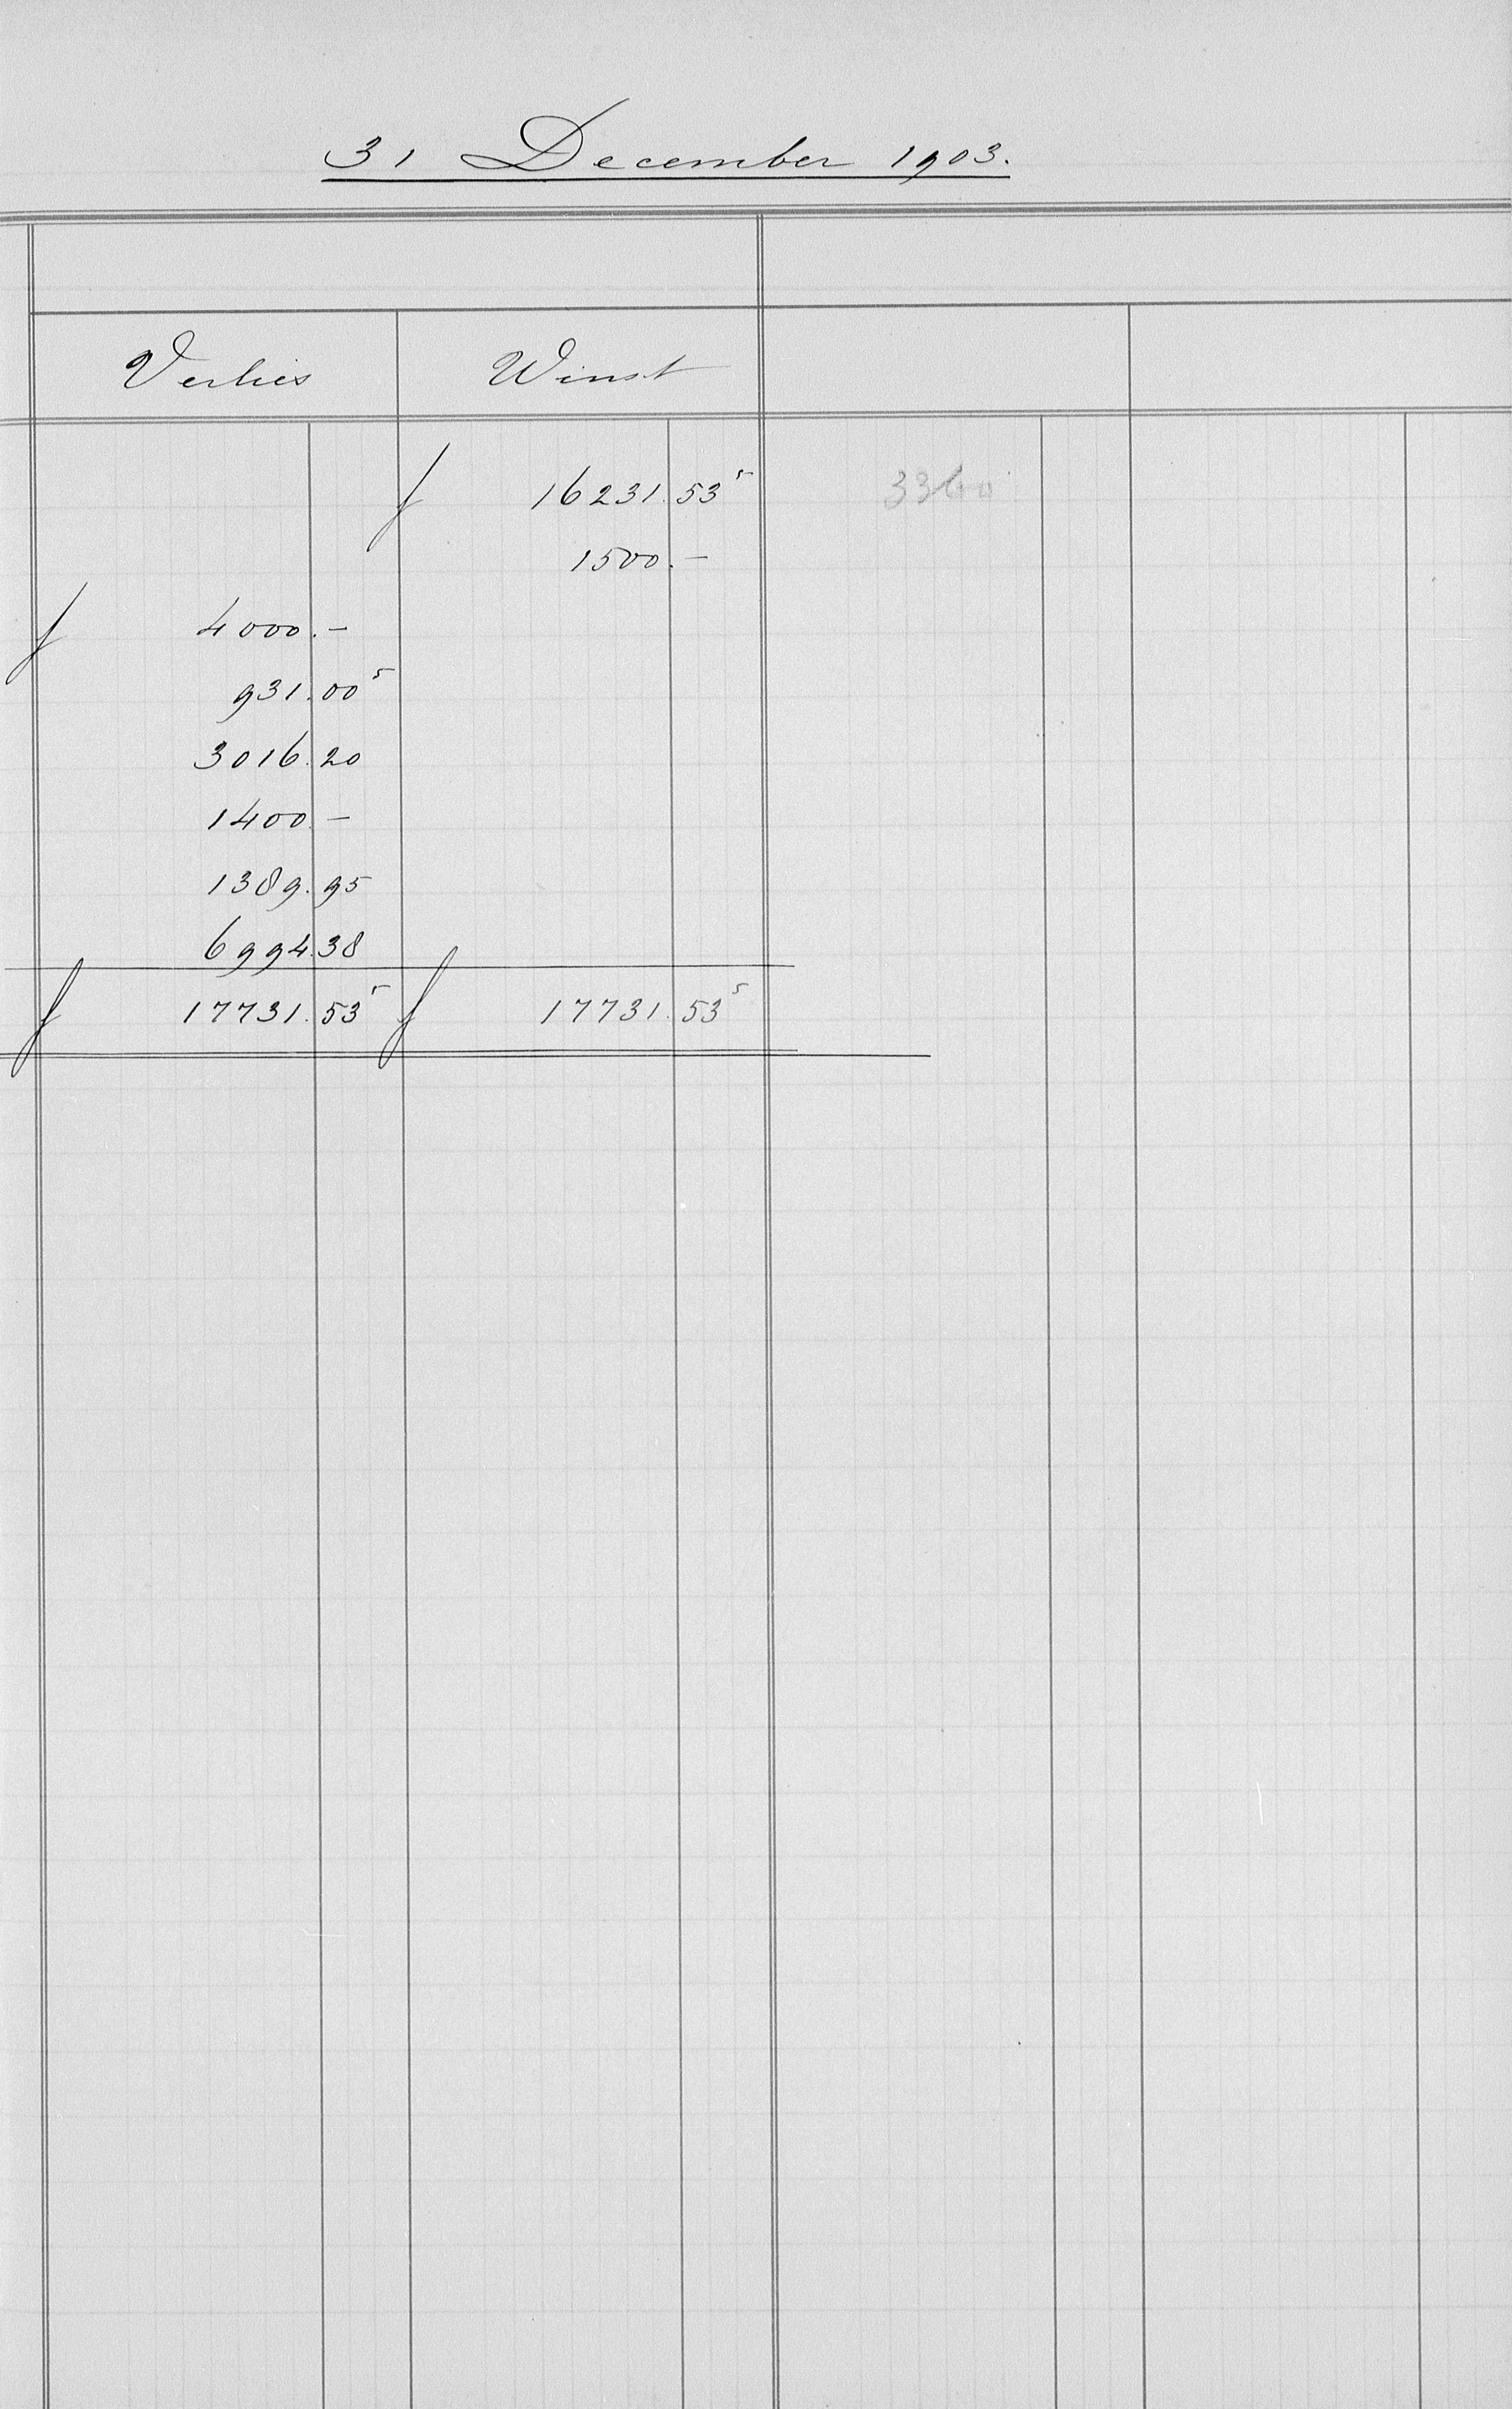 31 December 1903.
Verlies Winst
f 16231.53⁵ 3360
1500.-
f 4000.-
931.00⁵
3016.20
1400.-
1389.95
6994.38
f 17731.53⁵ f 17731.53⁵